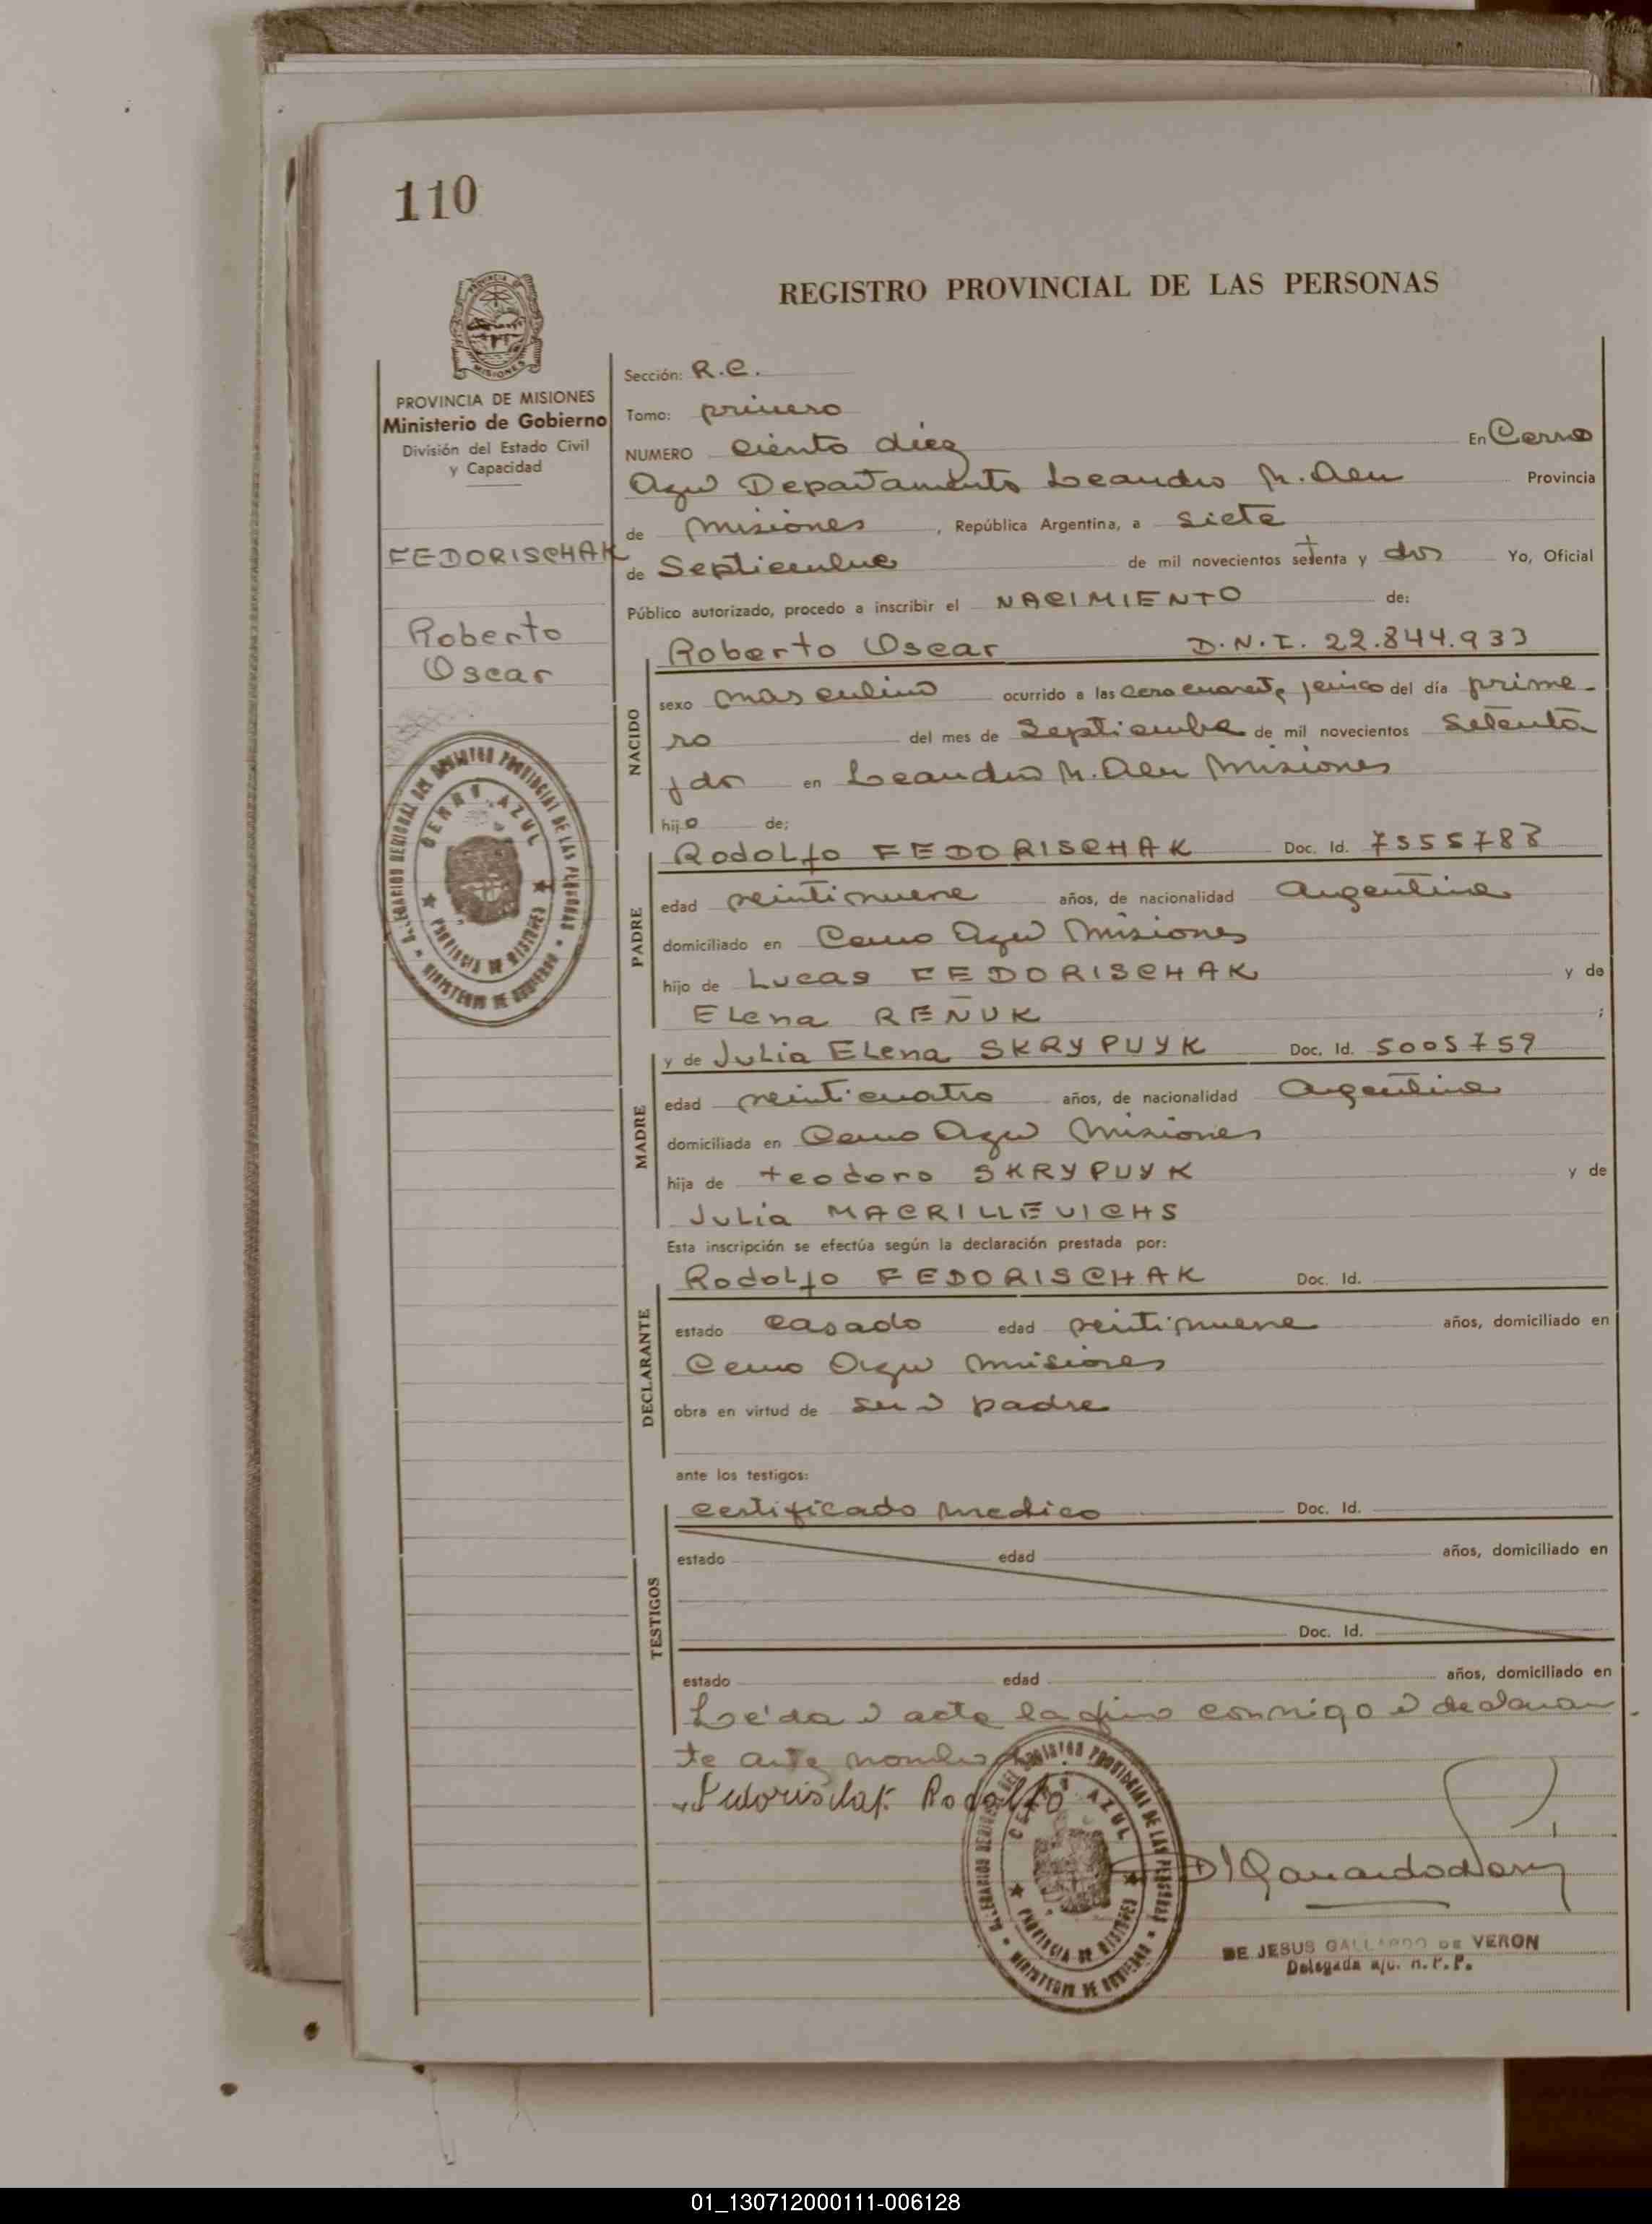 110
REGISTRO PROVINCIAL DE LAS PERSONAS
PROVINCIA DE MISIONES
Ministerio de Gobierno
División del Estado Civil
y Capacidad
FEDORISCHAK
Roberto
Oscar
Sección: R.C.
Tomo: primero
NUMERO ciento diez En Cerro
Azul Departamento Leandro N. Alem Provincia
de Misiones, República Argentina, a siete
de Septiembre de mil novecientos setenta y dos Yo, Oficial
Público autorizado, procedo a inscribir el NACIMIENTO de:
Roberto Oscar D.N.I. 22.844.933
NACIDO
sexo masculino ocurrido a las cero cuarenta y cinco del día prime-
ro del mes de Septiembre de mil novecientos setenta
y dos en Leandro N. Alem Misiones
hijo de;
PADRE
Rodolfo FEDORISCHAK Doc. Id. 7355788
edad veintinueve años, de nacionalidad Argentina
domiciliado en Cerro Azul Misiones
hijo de Lucas FEDORISCHAK y de
Elena REÑUK ;
MADRE
y de Julia Elena SKRYPUYK Doc. Id. 5005759
edad veinticuatro años, de nacionalidad Argentina
domiciliada en Cerro Azul Misiones
hija de teodoro SKRYPUYK y de
Julia MACRILLEVICHS
Esta inscripción se efectúa según la declaración prestada por:
DECLARANTE
Rodolfo FEDORISCHAK Doc. Id.
estado casado edad veintinueve años, domiciliado en
Cerro Azul Misiones
obra en virtud de ser el padre
ante los testigos:
TESTIGOS
certificado medico Doc. Id.
estado edad años, domiciliado en
Doc. Id.
estado edad años, domiciliado en
Leida el acta la firma conmigo el declaran
te ante nombrado
Fedorischak Rodolfo
CERRO AZUL
PROVINCIA DE MISIONES
MINISTERIO DE GOBIERNO
DE JESUS GALLARDO DE VERON
Delegada a/c. R.P.P.
01_130712000111-006128